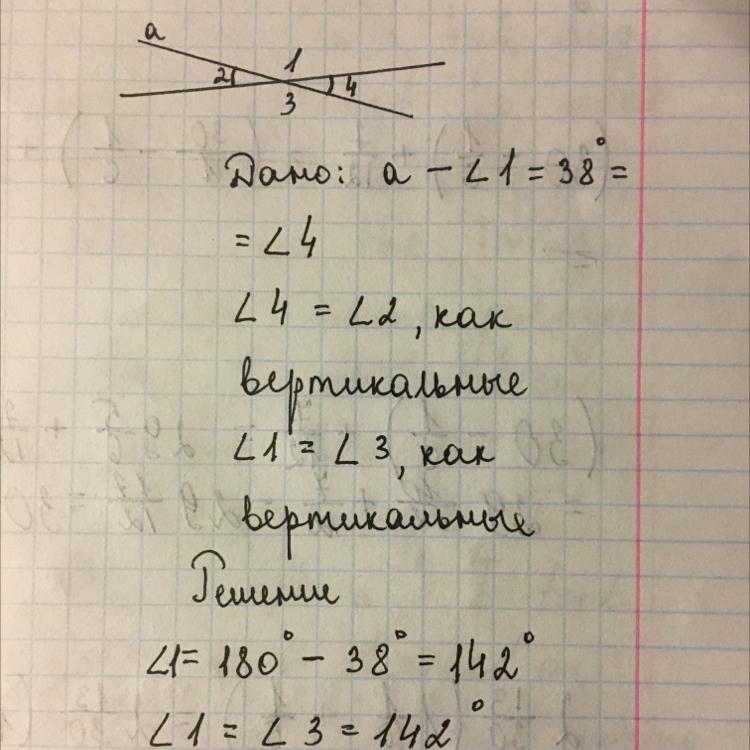 a
1
2 4
3
Дано: a - ∠1 = 38° =
= ∠4
∠4 = ∠2, как
вертикальные
∠1 = ∠3, как
вертикальные
Решение
∠1 = 180° - 38° = 142°
∠1 = ∠3 = 142°